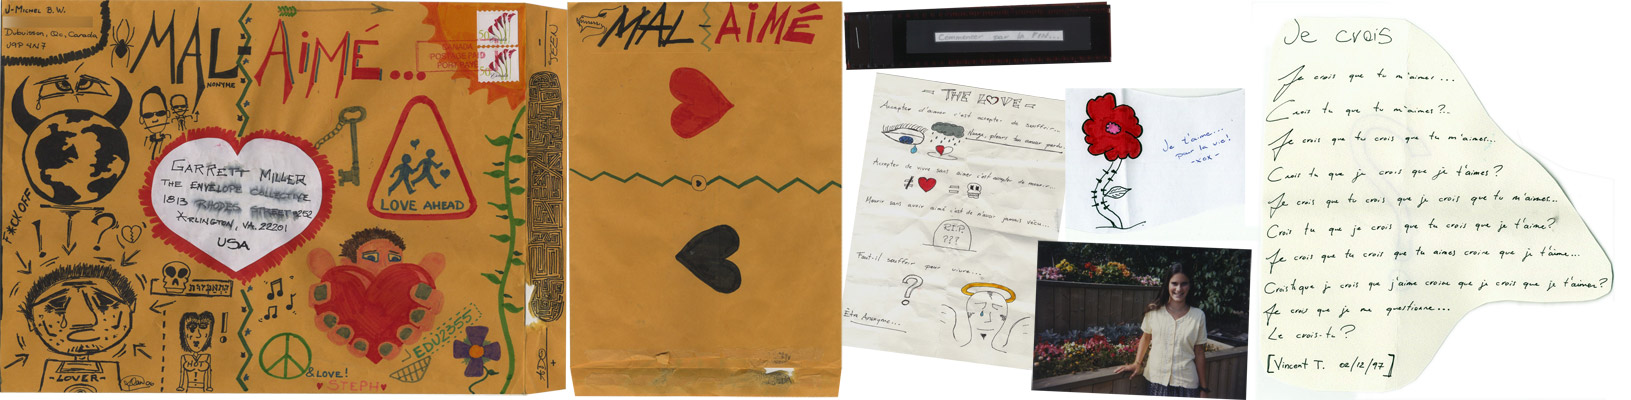 J-Michel B.W.
Dubuisson, Qc, Canada
J9P 4N7
MAL AiMÉ...
NONYME
CANADA
POSTAGE PAID
PORT PAYÉ
50
50
GARRETT MILLER
THE ENVELOPE COLLECTIVE
1813 RHODES STREET #252
ARLINGTON, VA. 22201
USA
LOVE AHEAD
F*CK OFF
! ?
-LOVER-
HOT
!
& LOVE!
STEPH
EDU2955
MAL AiMÉ
Commencer par la FIN...
THE LOVE
Accepter d'aimer c'est accepter de souffrir...
Nuage, pleurs ton amour perdu
Accepter de vivre sans aimer c'est accepter de mourir...
≠ =
Mourir sans avoir aimé c'est de n'avoir jamais vécu...
R.I.P.
???
Faut-il souffrir pour vivre...
?
Être Anonyme...
Je t'aime...
pour la vie!
-xox-
Je crois
Je crois que tu m'aimes...
Crois tu que tu m'aimes?..
Je crois que tu crois que tu m'aimes...
Crois tu que tu crois que je t'aimes?
Je crois que tu crois que je crois que tu m'aimes...
Crois tu que je crois que tu crois que je t'aime?
Je crois que tu crois que tu aimes croire que je t'aime...
Crois tu que je crois que j'aime croire que je crois que je t'aimes?
Je crois que je me questionne...
Le crois-tu?
[Vincent T. 02/12/97]